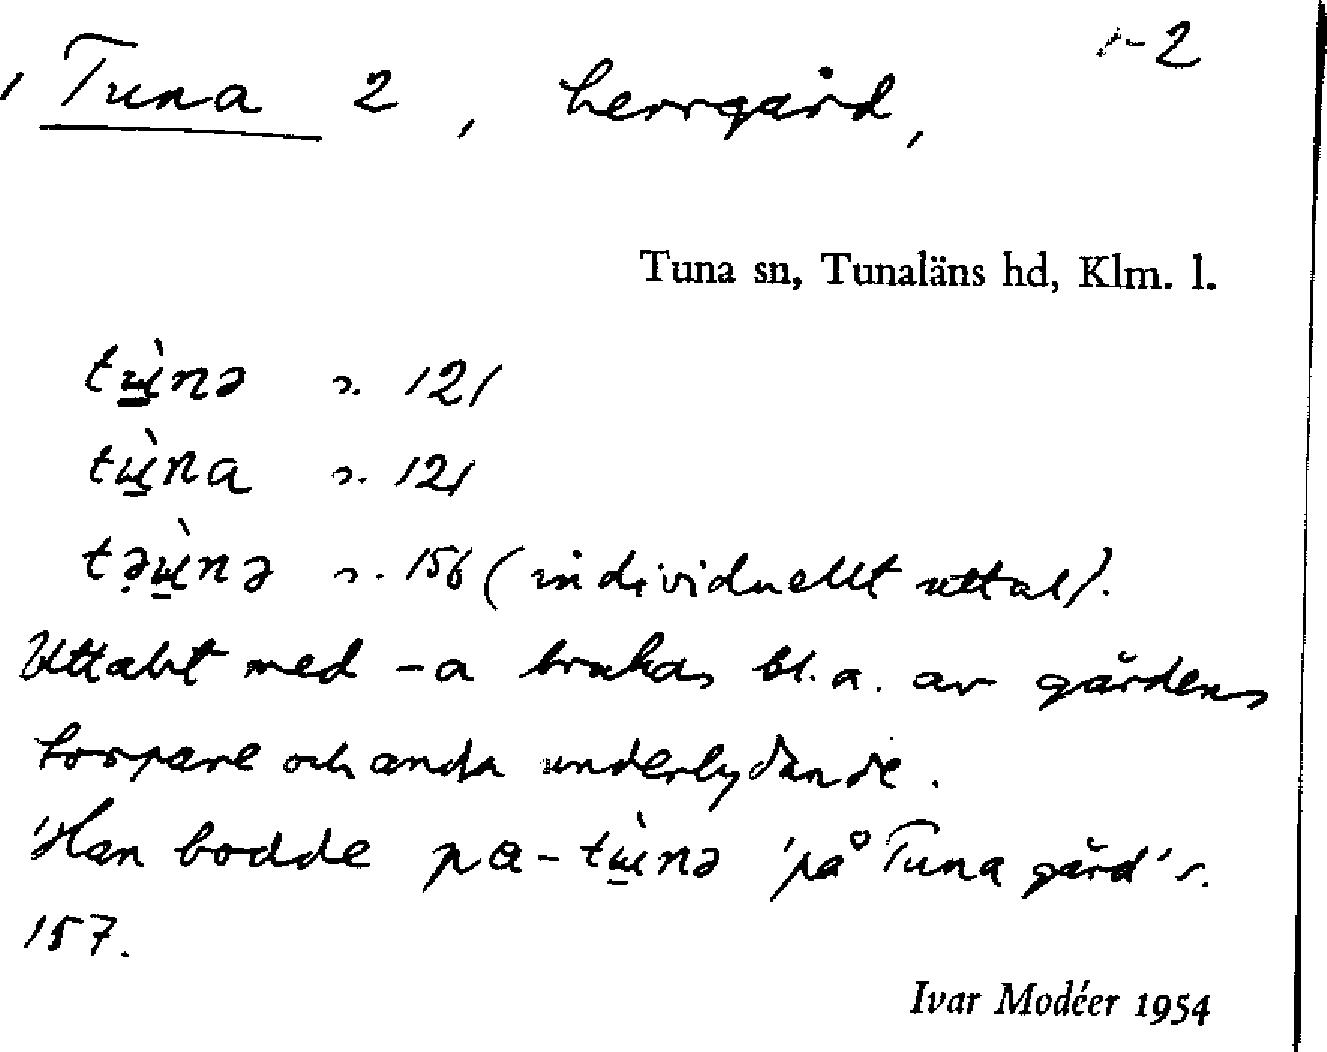 1-2
Tuna 2, herrgård,
Tuna sn, Tunaläns hd, Klm. l.
tɯ̲̀nə s. 121
tɯ̲̀na s. 121
tə̣ɯ̲̀nə s. 156 (individuellt uttal).
Uttalet med -a brukas bl.a. av gårdens
torpare och andra underlydande.
'Han bodde pa-tɯ̲̀nə 'på Tuna gård' s.
157.
Ivar Modéer 1954